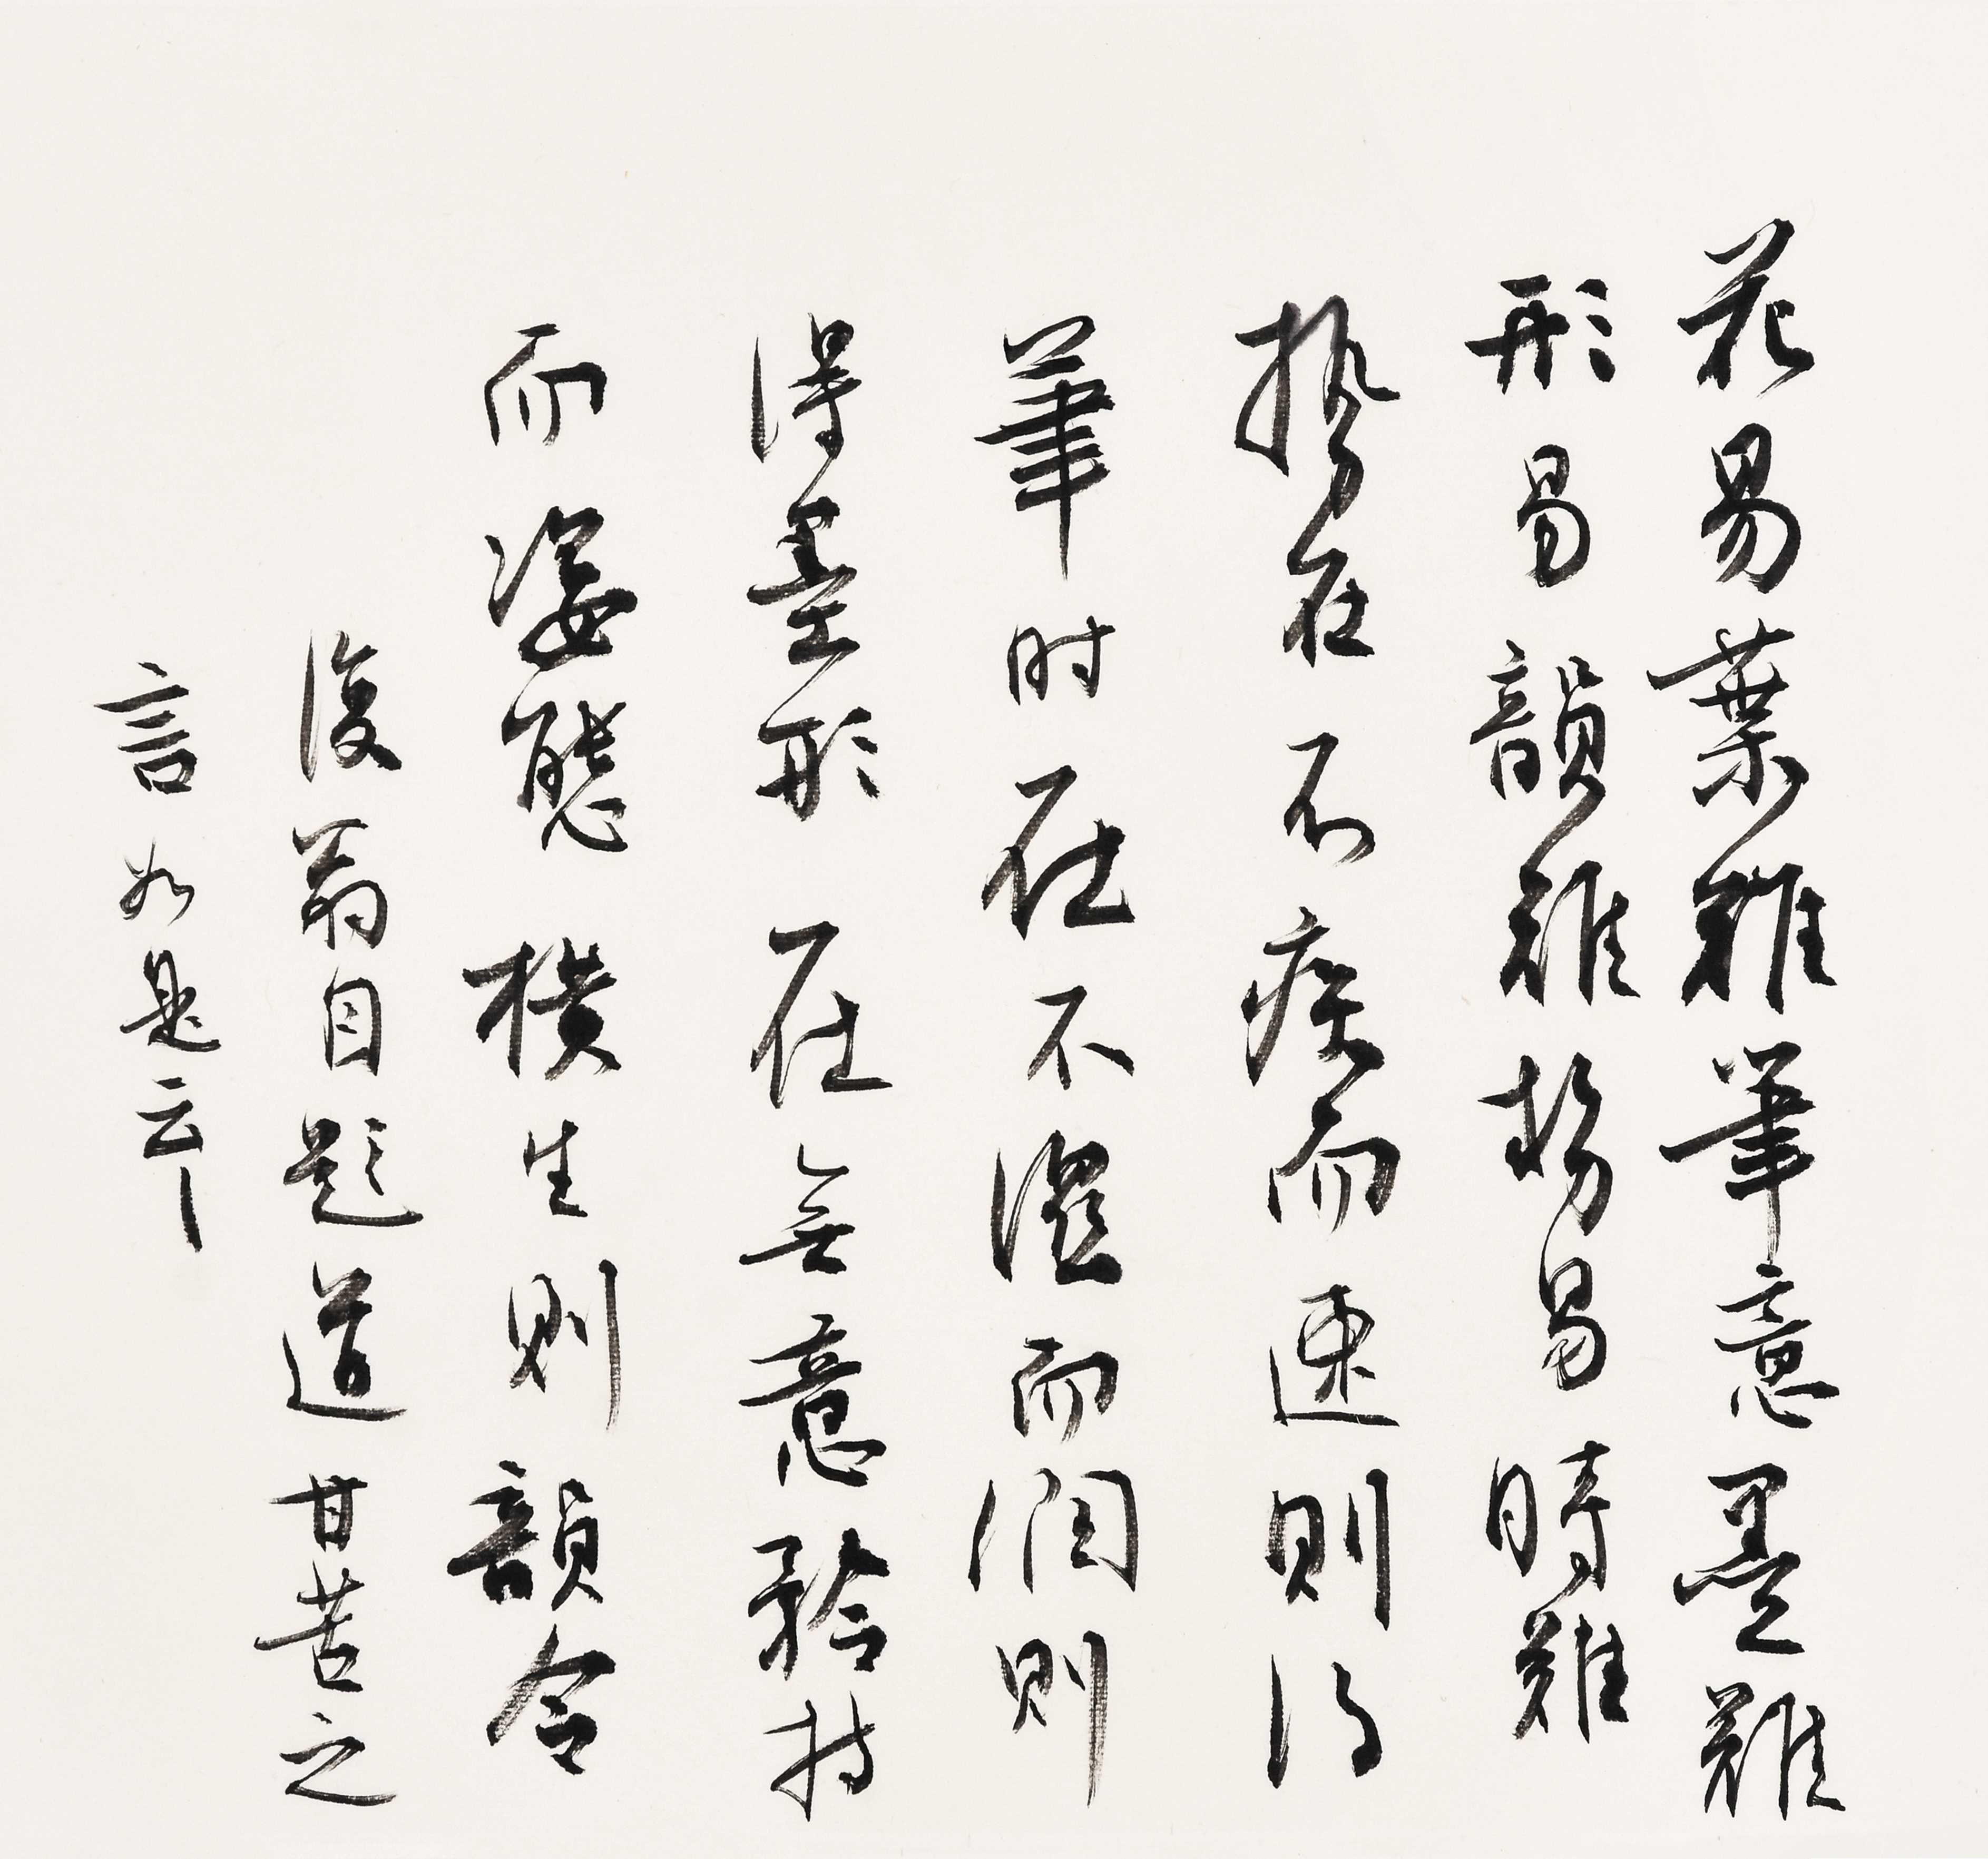 花易葉難筆意墨難
形易韻難勢易時難
勢在不疾而速則得
筆时在不濕而潤則
得墨形在無意矜持
而姿態橫生則韻
復翁自題道甘苦之
言如是云